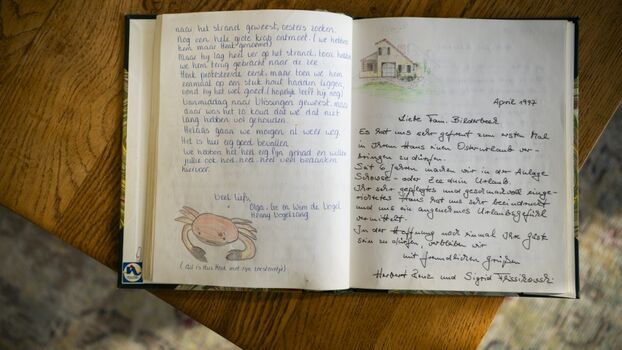 naar het strand geweest, oesters zoeken.
Nog een hele grote krab ontmoet. (we hebben
hem maar Henk genoemd)
Maar hij lag heel ver op het strand, toen hebben
we hem terug gebracht naar de zee.
Henk protesteerde eerst, maar toen we hem
eenmaal op een stuk hout hadden liggen,
vond hij het wel goed (hopelijk leeft hij nog)
Vanmiddag naar Vlissingen geweest, maar
daar was het zo koud dat we dat niet
lang hebben vol gehouden.
Helaas gaan we morgen al weer weg.
Het is hier erg goed bevallen.
We hebben het heel erg fijn gehad en willen
jullie ook heel heel heel veel bedanken
hiervoor.
Veel liefs,
Olga, Ge en Wim de Vogel
Henny Vogelzang
(dit is dus Henk met zijn)
April 1997
Liebe Fam. Bilderbeek
Es hat uns sehr gefreut zum ersten Mal
in Ihrem Haus einen Osterurlaub ver-
bringen zu dürfen.
Seit 6 Jahren machen wir in der Anlage
Urlaub.
Ihr sehr gepflegtes und geschmackvoll einge-
richtetes Haus hat uns sehr beeindruckt
und uns ein angenehmes Urlaubsgefühl
vermittelt.
In der Hoffnung noch einmal Ihre Gäste
sein zu dürfen, verbleiben wir
mit freundlichen Grüßen
Herbert und Sigrid